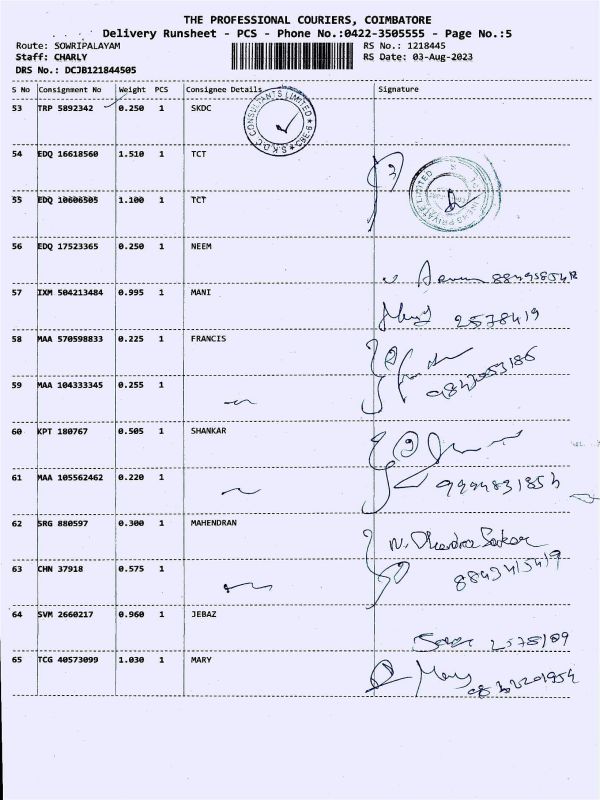 THE PROFESSIONAL COURIERS, COIMBATORE
Delivery Runsheet - PCS - Phone No.:0422-3505555 - Page No.:5
Route: SOWRIPALAYAM RS No.: 1218445
Staff: CHARLY RS Date: 03-Aug-2023
DRS No.: DCJB121844505
S No Consignment No Weight PCS Consignee Details Signature
53 TRP 5892342 0.250 1 SKDC
S.K.D.C CONSULTANTS LIMITED
54 EDQ 16618560 1.510 1 TCT
PRIVATE LIMITED
55 EDQ 10606505 1.100 1 TCT
56 EDQ 17523365 0.250 1 NEEM
57 IXM 504213484 0.995 1 MANI
2578419
58 MAA 570598833 0.225 1 FRANCIS
59 MAA 104333345 0.255 1
60 KPT 180767 0.505 1 SHANKAR
61 MAA 105562462 0.220 1
62 SRG 880597 0.300 1 MAHENDRAN
63 CHN 37918 0.575 1
64 SVM 2660217 0.960 1 JEBAZ
65 TCG 40573099 1.030 1 MARY
Mary